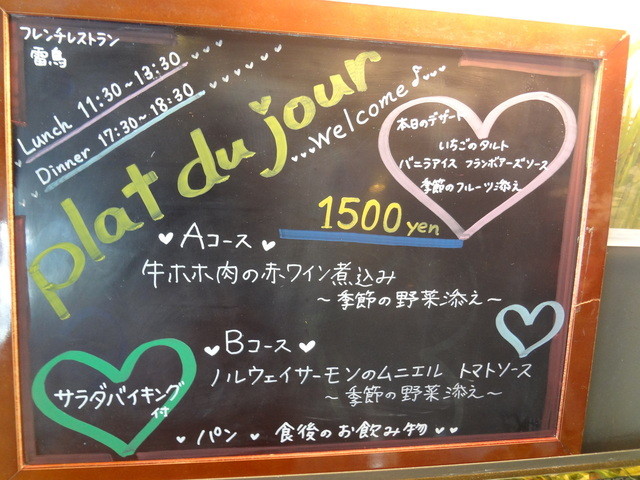 フレンチレストラン
雷鳥
Lunch 11:30~13:30
Dinner 17:30~18:30
plat du jour
welcome♪
本日のデザート
いちごのタルト
バニラアイス フランボアーズソース
季節のフルーツ添え
1500 yen
Aコース
牛ホホ肉の赤ワイン煮込み
～季節の野菜添え～
Bコース
ノルウェイサーモンのムニエル トマトソース
～季節の野菜添え～
サラダバイキング
付
パン 食後のお飲み物